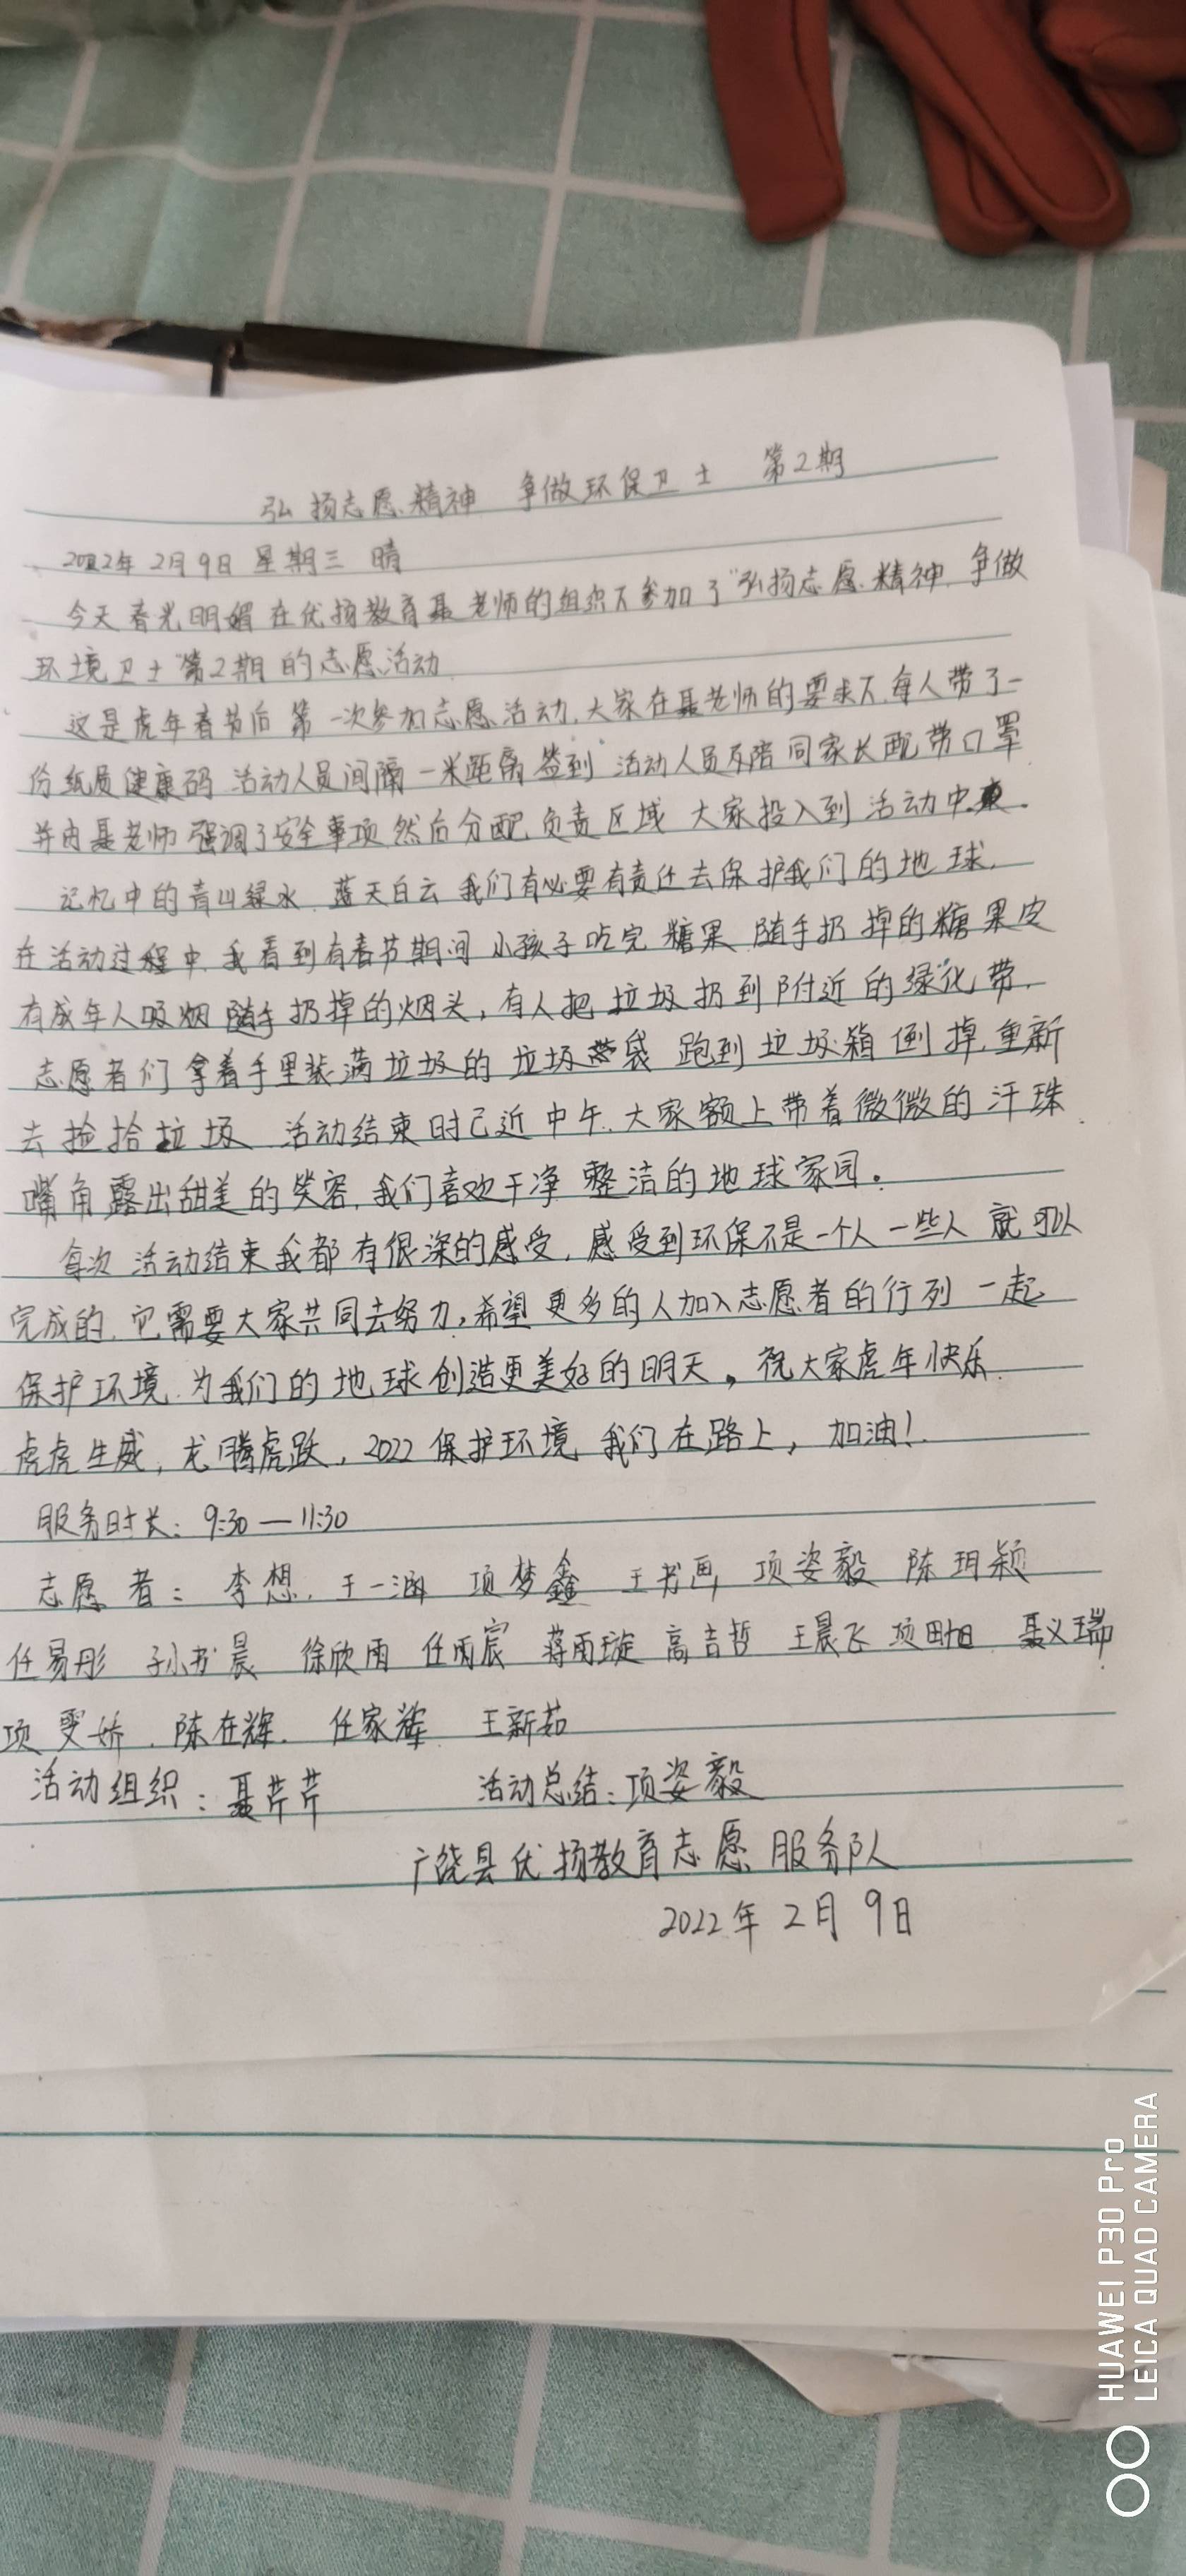 弘扬志愿精神 争做环保卫士 第2期
2022年2月9日 星期三 晴
今天春光明媚 在优扬教育聂老师的组织下参加了"弘扬志愿精神,争做
环境卫士"第2期的志愿活动.
这是虎年春节后第一次参加志愿活动,大家在聂老师的要求下,每人带了一
份纸质健康码 活动人员间隔一米距离签到 活动人员及陪同家长配带口罩
并由聂老师强调了安全事项然后分配负责区域 大家投入到活动中.
记忆中的青山绿水,蓝天白云 我们有必要有责任去保护我们的地球.
在活动过程中,我看到有春节期间 小孩子吃完糖果 随手扔掉的糖果皮
有成年人吸烟随手扔掉的烟头,有人把垃圾扔到附近的绿化带.
志愿者们拿着手里装满垃圾的垃圾袋 跑到垃圾箱倒掉,重新
去捡拾垃圾 活动结束时已近中午,大家额上带着微微的汗珠
嘴角露出甜美的笑容,我们喜欢干净整洁的地球家园。
每次活动结束我都有很深的感受,感受到环保不是一个人一些人就可以
完成的,它需要大家共同去努力,希望更多的人加入志愿者的行列一起
保护环境,为我们的地球创造更美好的明天。祝大家虎年快乐
虎虎生威,龙腾虎跃,2022保护环境,我们在路上,加油!
服务时长:9:30—11:30
志愿者:李想 王一涵 项梦鑫 王书画 项姿毅 陈玥颖
任易彤 孙书晨 徐欣雨 任雨宸 蒋雨璇 高吉哲 王晨飞 项田旭 聂义瑞
项雯娇 陈在辉 任家辉 王新茹
活动组织:聂芹芹 活动总结:项姿毅
广饶县优扬教育志愿服务队
2022年2月9日
HUAWEI P30 Pro
LEICA QUAD CAMERA